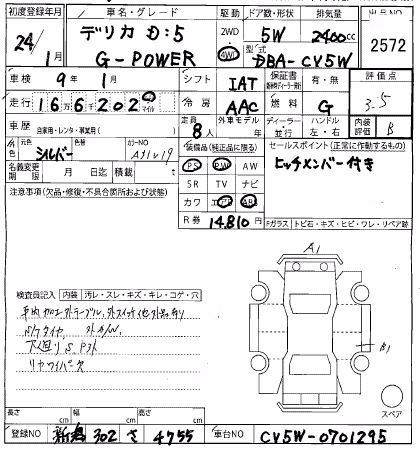 初度登録年月 車名・グレード 駆動 ドア数・形状 排気量 出品NO
24/1月 デリカ D:5 2WD 5W 2400cc 2572
G-POWER 4WD 型式 DBA-CV5W
車検 9年 1月 シフト IAT 保証書 有・無 評価点
走行 166202 マイル 冷房 AAC 燃料 G 3.5
車歴 自家用・レンタ・ 定員 8人 外車モデル 年 ディーラー・並行 ハンドル 左・右 内装評価 B
外色 元色 シルバー 色替 カラーNO 装備品(純正品に限る) セールスポイント(正常に作動するもの)
名義変更期限 月 日迄 積載 t PS PW AW ヒッチメンバー付き
注意事項(欠品・修復・不具合箇所および状態) SR TV ナビ
カワ エアB ABS
R券 14,810円 Fガラス トビ石・キズ・ヒビ・ワレ・リペア跡
A1
検査員記入 内装 汚レ・スレ・キズ・キレ・コゲ・穴
S/タイヤ
下廻り S
リヤワイパー欠
B1
スペア
長さ cm 幅 cm 高さ cm
登録NO 新潟 302 さ 4755 車台NO CV5W-0701295